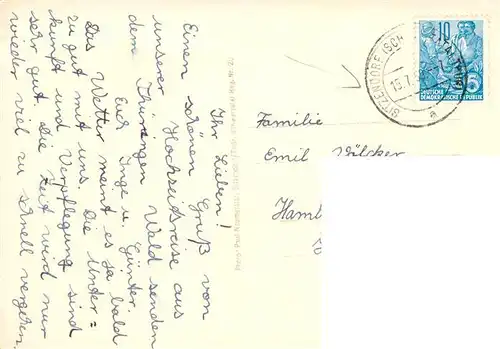 Ihr Lieben!
Einen schönen Gruß von
unserer Hochzeitsreise aus
dem Thüringen Wald senden
Euch Inge u. Günter.
Das Wetter meint es ja bald
zu gut mit uns. Die Unter=
kunft und Verpflegung sind
sehr gut. Die Zeit wird nur
wieder viel zu schnell vergehen.
10
DEUTSCHE
DEMOKRATISCHE REPUBLIK
a
Familie
Emil Völcker
Hamb